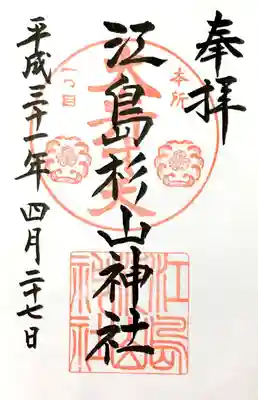 奉拝
本所
一つ目
江島杉山神社
平成三十一年 四月二十七日
江島
杉山
神社